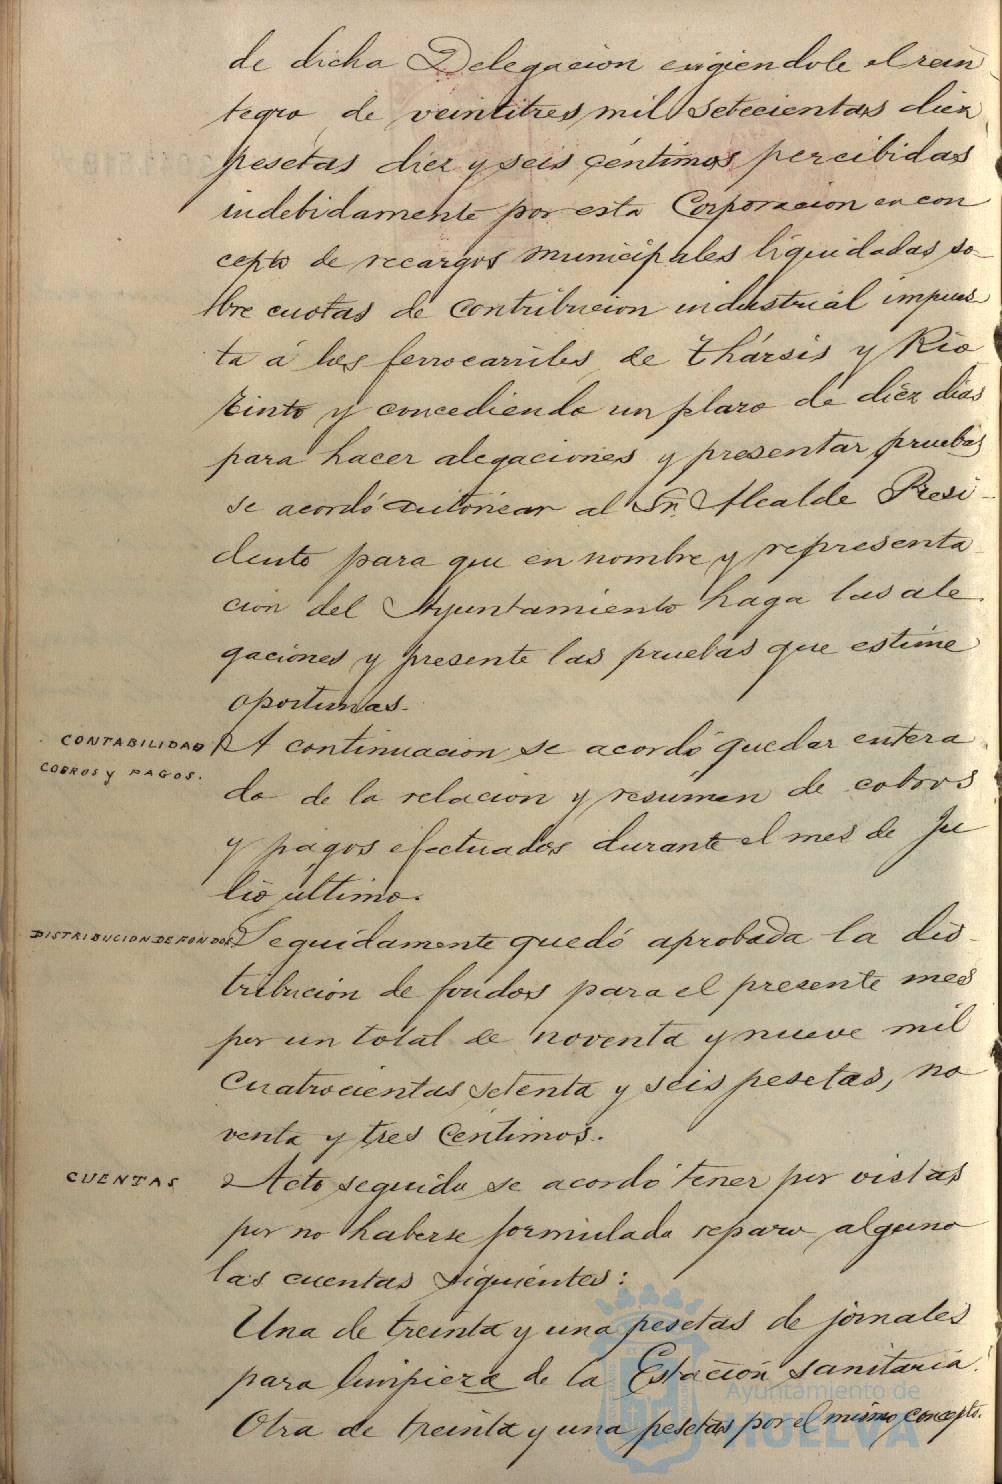 de dicha Delegacion exigiendole el rein
tegro de veintitres mil setecientas diez
pesetas diez y seis céntimos percibidas
indebidamente por esta Corporacion en con
cepto de recargos municipales liquidadas so-
bre cuotas de contribucion industrial impues
ta á los ferrocarriles de Thársis y Rio
tinto y concediendo un plazo de diéz dias
para hacer alegaciones y presentar pruebas
se acordó autorizar al Sr. Alcalde Presi-
dente para que en nombre y representa
cion del Ayuntamiento haga las ale
gaciones y presente las pruebas que estime
oportunas.
CONTABILIDAD
COBROS y PAGOS.
A continuacion se acordó quedar entera
do de la relacion y resúmen de cobros
y pagos efectuados durante el mes de Ju
lio último.
DISTRIBUCION DE FONDOS
Seguidamente quedó aprobada la dis-
tribución de fondos para el presente mes
por un total de noventa y nueve mil
cuatrocientas setenta y seis pesetas, no
venta y tres centimos.
CUENTAS
Acto seguido se acordó tener por vistas
por no haberse formulado reparo alguno
las cuentas siguientes:
Una de treinta y una pesetas de jornales
para limpieza de la Estación sanitaria.
Otra de treinta y una pesetas por el mismo concepto.
Ayuntamiento de
HUELVA